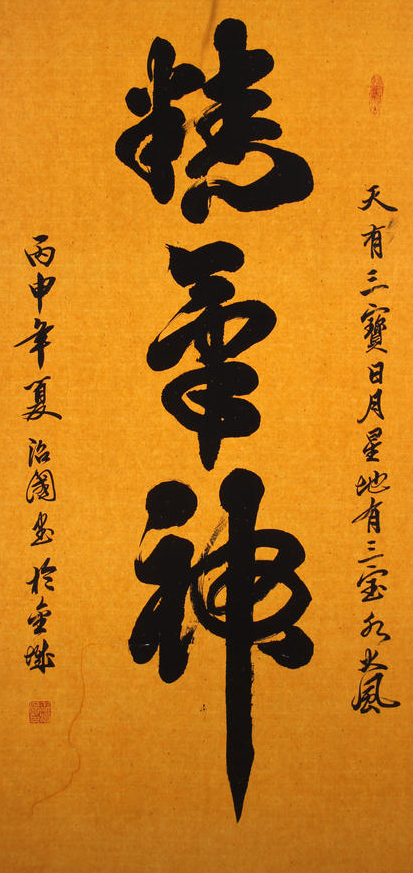 天有三寶日月星地有三宝水火風
精氣神
丙申年夏治國書於金城